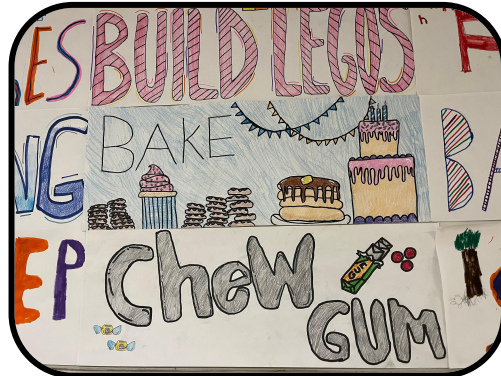 ES
BUILD LEGOS
NG
BAKE
BA
EP
Chew
GUM
GUM